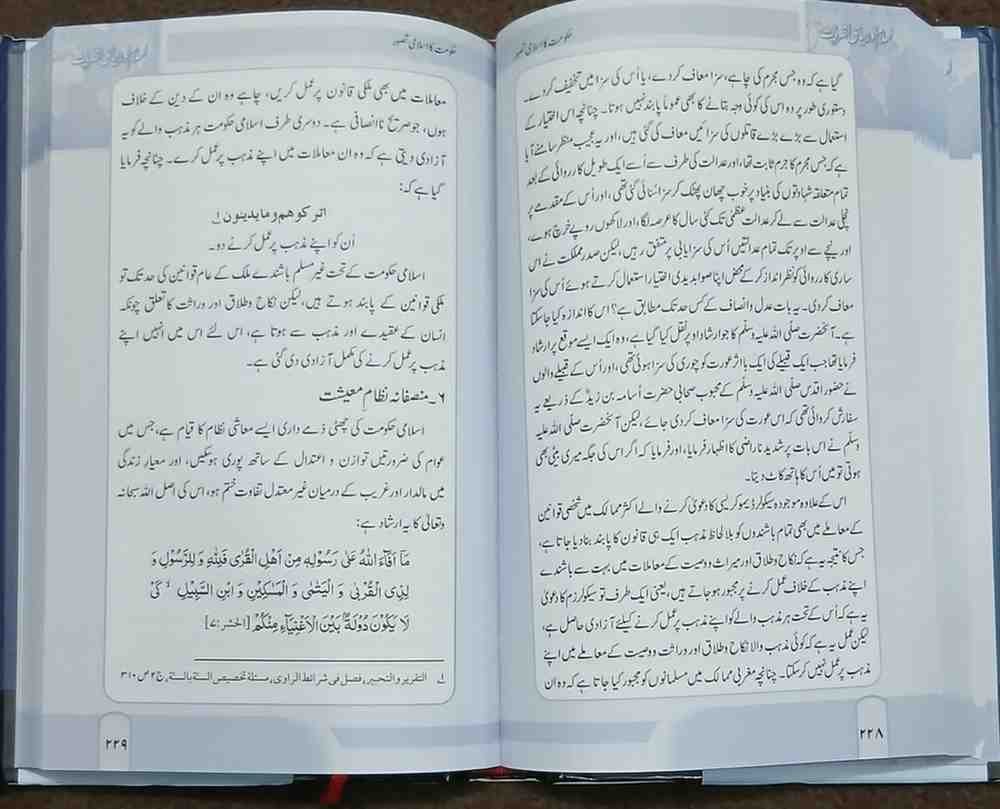 حکومت کا اسلامی تصور
گیا ہے کہ وہ جس مجرم کی چاہے، سزا معاف کردے، یا اُس کی سزا میں تخفیف کردے۔
دستوری طور پر وہ اس کی کوئی وجہ بتانے کا بھی عموماً پابند نہیں ہوتا۔ چنانچہ اس اختیار کے
استعمال سے بڑے بڑے قاتلوں کی سزائیں معاف کی گئی ہیں، اور یہ عجیب منظر سامنے آیا
ہے کہ جس مجرم کا جرم ثابت تھا، اور عدالت کی طرف سے اُسے ایک طویل کارروائی کے بعد
تمام متعلقہ شہادتوں کی بنیاد پر خوب چھان پھٹک کر سزا سنائی گئی تھی، اور اُس کے مقدمے پر
نچلی عدالت سے لے کر عدالت عظمیٰ تک کئی سال کا عرصہ لگا، اور لاکھوں روپے خرچ ہوئے،
اور نیچے سے اوپر تک تمام عدالتیں اُس کی سزایابی پر متفق رہیں، لیکن صدر مملکت نے اس
ساری کارروائی کو نظر انداز کر کے محض اپنا صوابدیدی اختیار استعمال کرتے ہوئے اُس کی سزا
معاف کردی۔ یہ بات عدل و انصاف کے کس حد تک مطابق ہے؟ اس کا اندازہ کیا جا سکتا
ہے۔ آنحضرت صلی اللہ علیہ وسلم کا جو ارشاد اوپر نقل کیا گیا ہے، وہ ایک ایسے موقع پر ارشاد
فرمایا تھا جب ایک قبیلے کی ایک با اثر عورت کو چوری کی سزا ہوئی تھی، اور اُس کے قبیلے والوں
نے حضور اقدس صلی اللہ علیہ وسلم کے محبوب صحابی حضرت اُسامہ بن زیدؓ کے ذریعے یہ
سفارش کروائی تھی کہ اس عورت کی سزا معاف کردی جائے، لیکن آنحضرت صلی اللہ علیہ
وسلم نے اس بات پر شدید ناراضی کا اظہار فرمایا، اور فرمایا کہ اگر اس کی جگہ میری بیٹی بھی
ہوتی تو میں اُس کا ہاتھ کاٹ دیتا۔
اس کے علاوہ موجودہ سیکولر ڈیموکریسی کا دعویٰ کرنے والے اکثر ممالک میں شخصی قوانین
کے معاملے میں بھی تمام باشندوں کو بلا لحاظ مذہب ایک ہی قانون کا پابند بنا دیا جاتا ہے،
جس کا نتیجہ یہ ہے کہ نکاح و طلاق اور میراث و وصیت کے معاملات میں بہت سے باشندے
اپنے مذہب کے خلاف عمل کرنے پر مجبور ہو جاتے ہیں، یعنی ایک طرف تو سیکولرزم کا دعویٰ
یہ ہے کہ اُس کے تحت ہر مذہب والے کو اپنے مذہب پر عمل کرنے کیلئے آزادی حاصل ہے،
لیکن عمل یہ ہے کہ کوئی مذہب والا نکاح و طلاق اور وراثت و وصیت کے معاملے میں اپنے
مذہب پر عمل نہیں کر سکتا۔ چنانچہ مغربی ممالک میں مسلمانوں کو مجبور کیا جاتا ہے کہ وہ ان
۲۲۸
حکومت کا اسلامی تصور
معاملات میں بھی ملکی قانون پر عمل کریں، چاہے وہ ان کے دین کے خلاف
ہوں، جو صریح ناانصافی ہے۔ دوسری طرف اسلامی حکومت ہر مذہب والے کو یہ
آزادی دیتی ہے کہ وہ ان معاملات میں اپنے مذہب پر عمل کرے۔ چنانچہ فرمایا
گیا ہے کہ:
اتركوهم وما يدينون ؎۱
اُن کو اپنے مذہب پر عمل کرنے دو۔
اسلامی حکومت کے تحت غیر مسلم باشندے ملک کے عام قوانین کی حد تک تو
ملکی قوانین کے پابند ہوتے ہیں، لیکن نکاح و طلاق اور وراثت کا تعلق چونکہ
انسان کے عقیدے اور مذہب سے ہوتا ہے، اس لئے اس میں انہیں اپنے
مذہب پر عمل کرنے کی مکمل آزادی دی گئی ہے۔
۶۔ منصفانہ نظام معیشت
اسلامی حکومت کی چھٹی ذمے داری ایسے معاشی نظام کا قیام ہے، جس میں
عوام کی ضرورتیں توازن و اعتدال کے ساتھ پوری ہوسکیں، اور معیار زندگی
میں مالدار اور غریب کے درمیان غیر معتدل تفاوت ختم ہو، اس کی اصل اللہ سبحانہ
وتعالیٰ کا یہ ارشاد ہے:
مَاۤ اَفَآءَ اللّٰهُ عَلٰی رَسُوْلِهٖ مِنْ اَهْلِ الْقُرٰی فَلِلّٰهِ وَ لِلرَّسُوْلِ وَ
لِذِی الْقُرْبٰی وَ الْیَتٰمٰی وَ الْمَسٰكِیْنِ وَ ابْنِ السَّبِیْلِ ۙ كَیْ
لَا یَكُوْنَ دُوْلَةًۢ بَیْنَ الْاَغْنِیَآءِ مِنْكُمْ [الحشر:۷]
؎۱ التقرير والتحبير، فصل فى شرائط الراوى، مسئلة تخصيص السنة بالسنة، ج ۲ ص ۳۱۰
۲۲۹